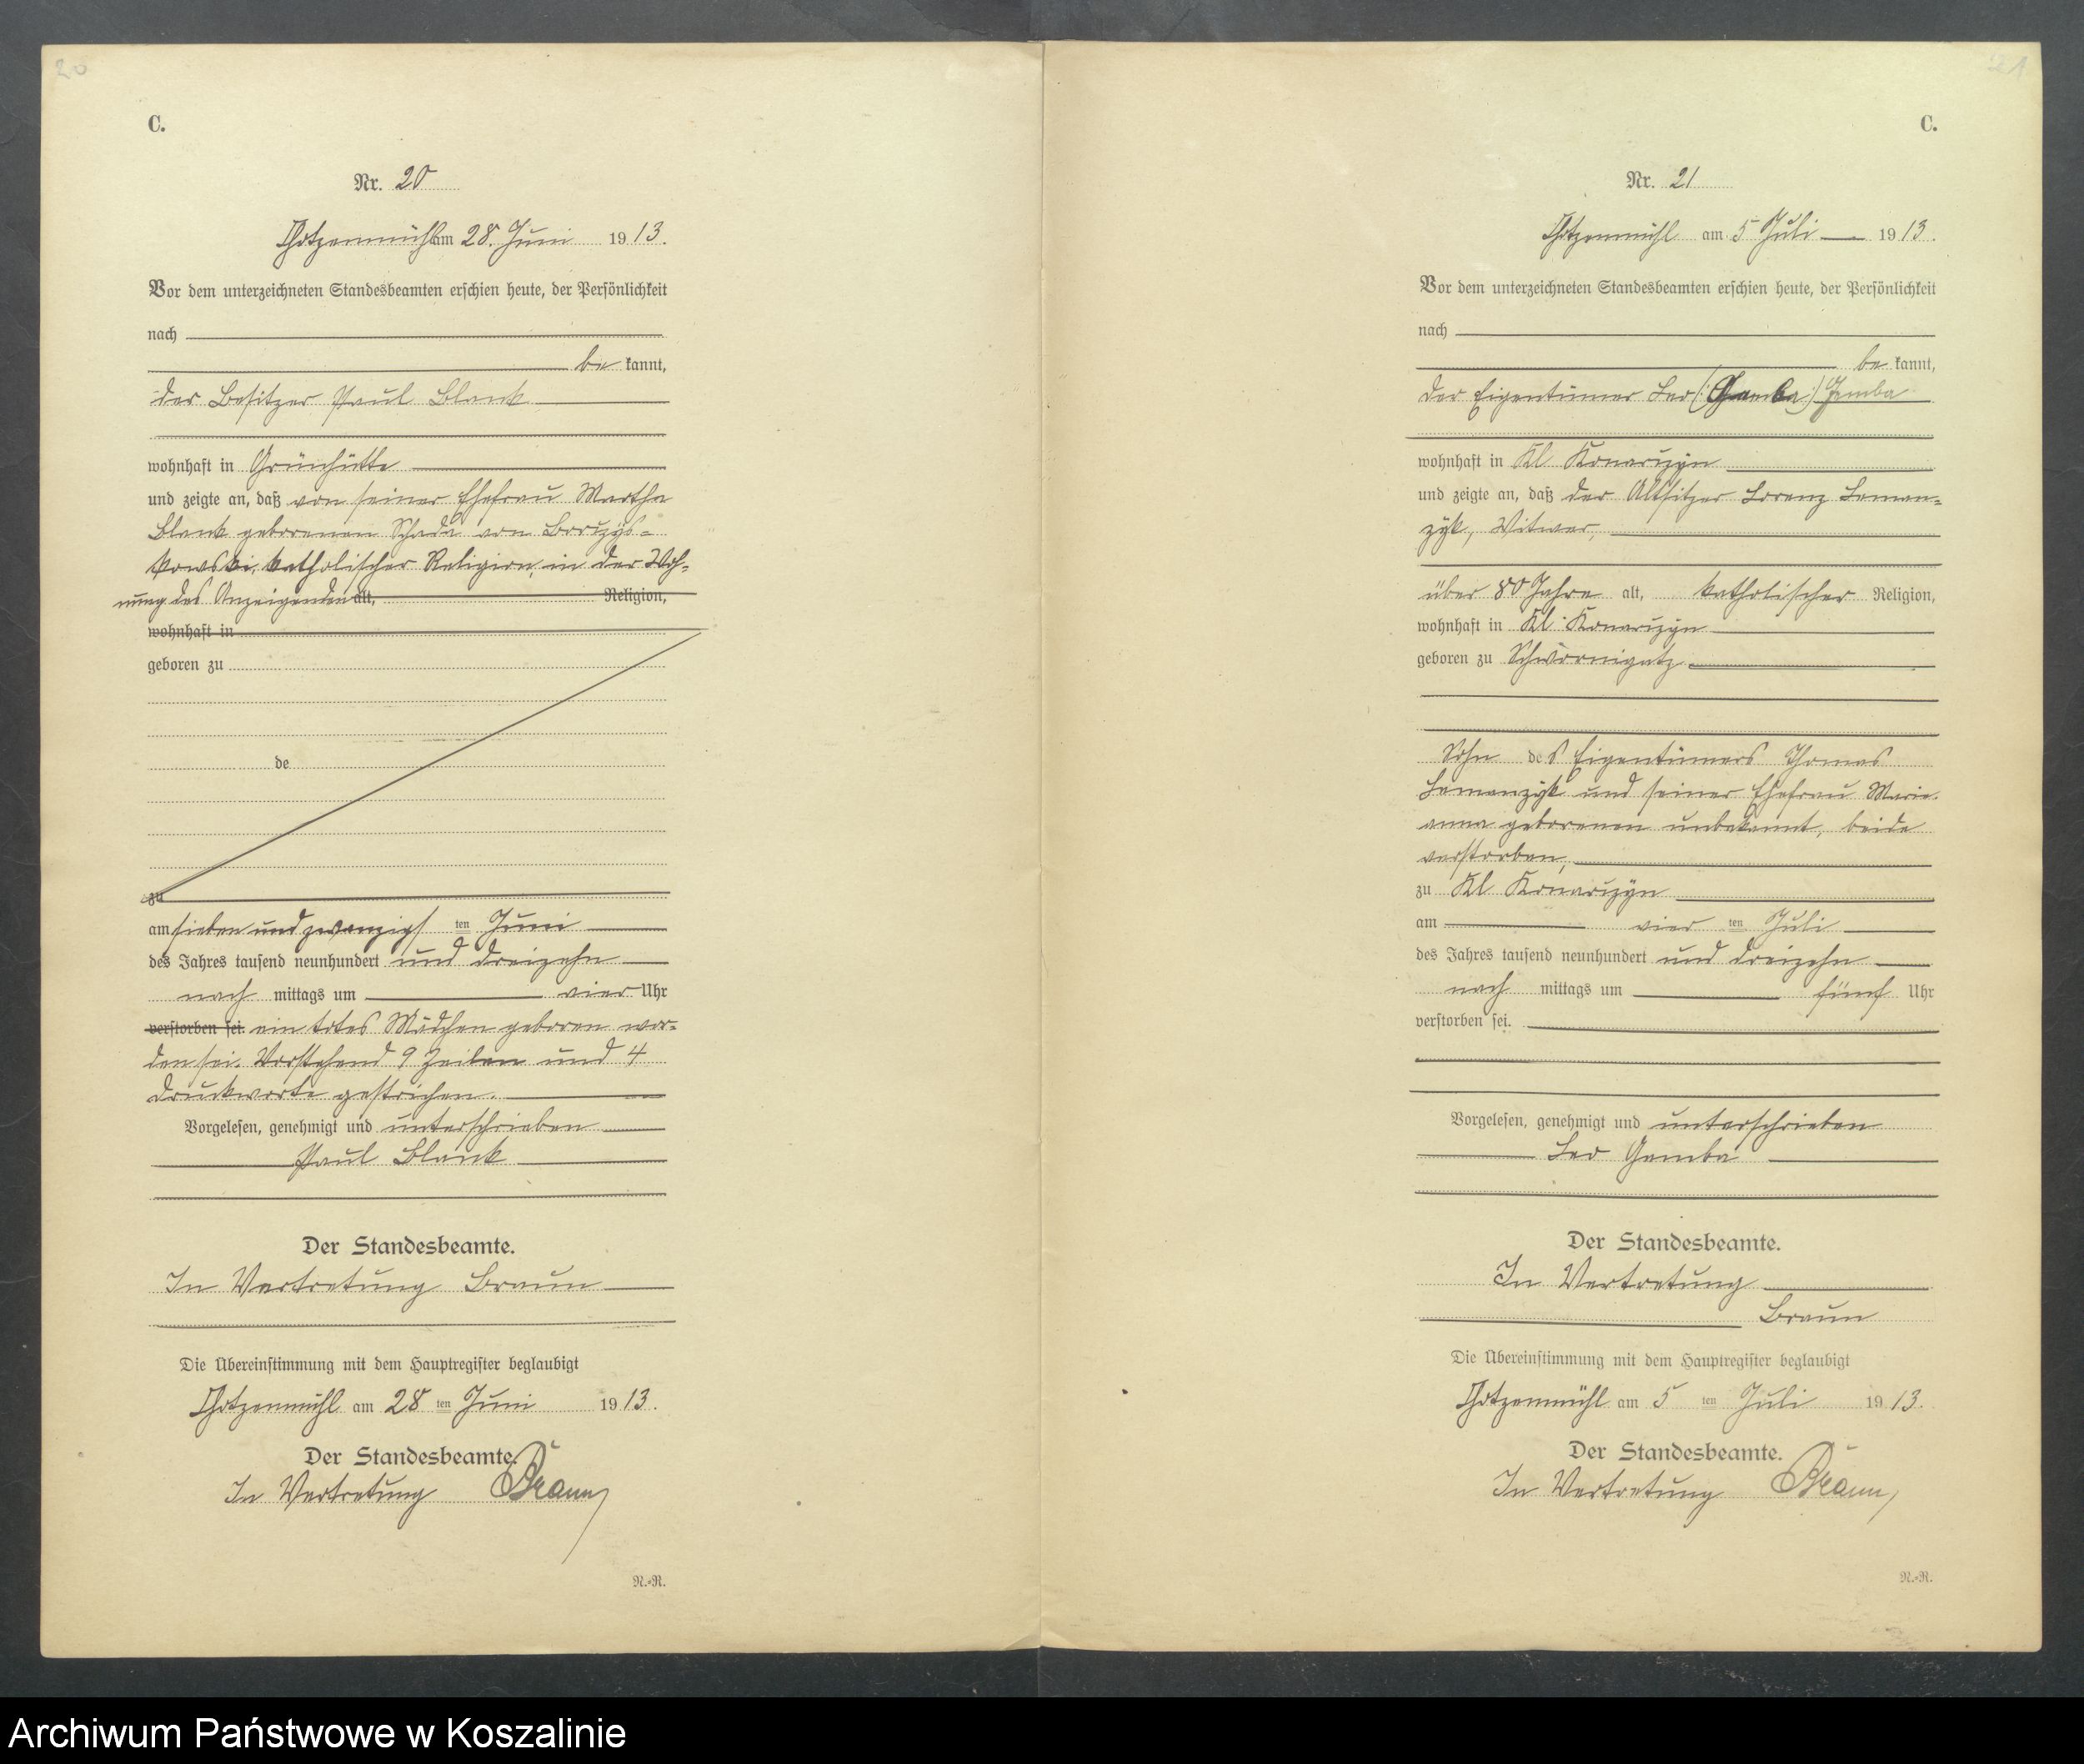 20
C.
Nr. 20
Chotzenmühl am 28. Juni 1913.
Vor dem unterzeichneten Standesbeamten erschien heute, der Persönlichkeit
nach
be kannt,
der Besitzer Paul Blank
wohnhaft in Grünhütte
und zeigte an, daß von seiner Ehefrau Martha
Blank geborenen Schada von Borzys=
kowski, katholischer Religion, in der Woh=
nung des Anzeigenden alt, Religion,
wohnhaft in
geboren zu
de
zu
am sieben und zwanzigs ten Juni
des Jahres tausend neunhundert und dreizehn
nach mittags um vier Uhr
verstorben sei. ein totes Mädchen geboren wor=
den sei. Vorstehend 9 Zeilen und 4
Druckworte gestrichen.
Vorgelesen, genehmigt und unterschrieben
Paul Blank
Der Standesbeamte.
In Vertretung Braun
Die Übereinstimmung mit dem Hauptregister beglaubigt
Chotzenmühl am 28 ten Juni 1913.
Der Standesbeamte.
In Vertretung Braun
N.=R.
21
C.
Nr. 21
Chotzenmühl am 5 Juli 1913.
Vor dem unterzeichneten Standesbeamten erschien heute, der Persönlichkeit
nach
be kannt,
der Eigentümer Leo (: Gemba :) Jemba
wohnhaft in Kl Konarzyn
und zeigte an, daß der Altsitzer Lorenz Leman=
zyk, Witwer,
über 80 Jahre alt, katholischer Religion,
wohnhaft in Kl. Konarzyn
geboren zu Schwornigatz
Sohn des Eigentümers Thomas
Lemanzyk und seiner Ehefrau Marie
anna geborenen unbekannt, beide
verstorben,
zu Kl Konarzyn
am vier ten Juli
des Jahres tausend neunhundert und dreizehn
nach mittags um fünf Uhr
verstorben sei.
Vorgelesen, genehmigt und unterschrieben
Leo Gemba
Der Standesbeamte.
In Vertretung
Braun
Die Übereinstimmung mit dem Hauptregister beglaubigt
Chotzenmühl am 5 ten Juli 1913.
Der Standesbeamte.
In Vertretung Braun
N.=R.
Archiwum Państwowe w Koszalinie